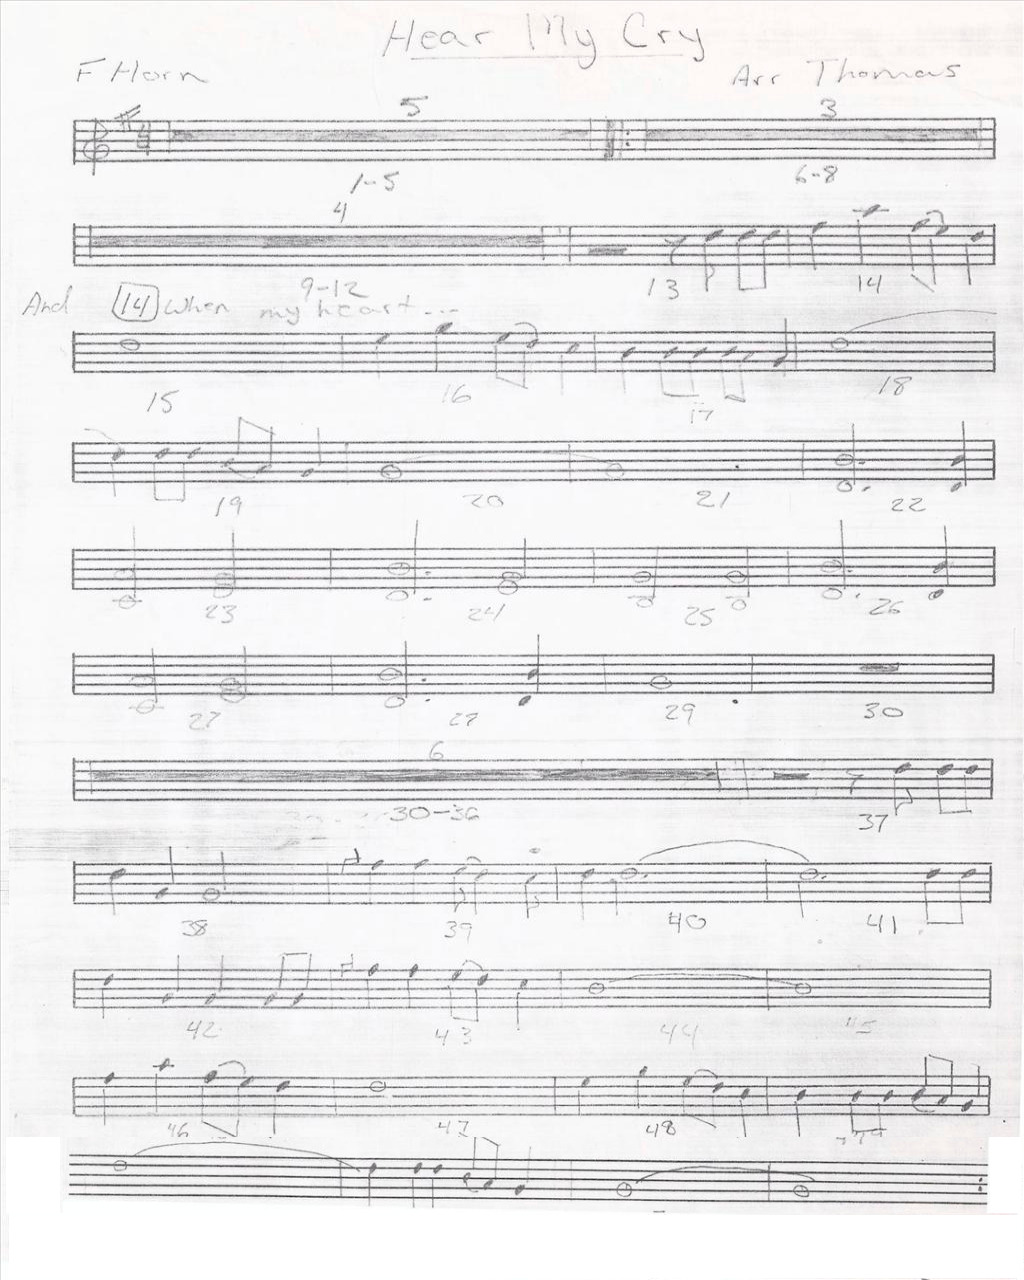 Hear My Cry
F Horn
Arr Thomas
5 3
1-5 6-8
4
9-12 13 14
And 14 When my heart...
15 16 17 18
19 20 21 22
23 24 25 26
27 28 29 30
6
30-36 37
38 39 40 41
42 43 44 45
46 47 48